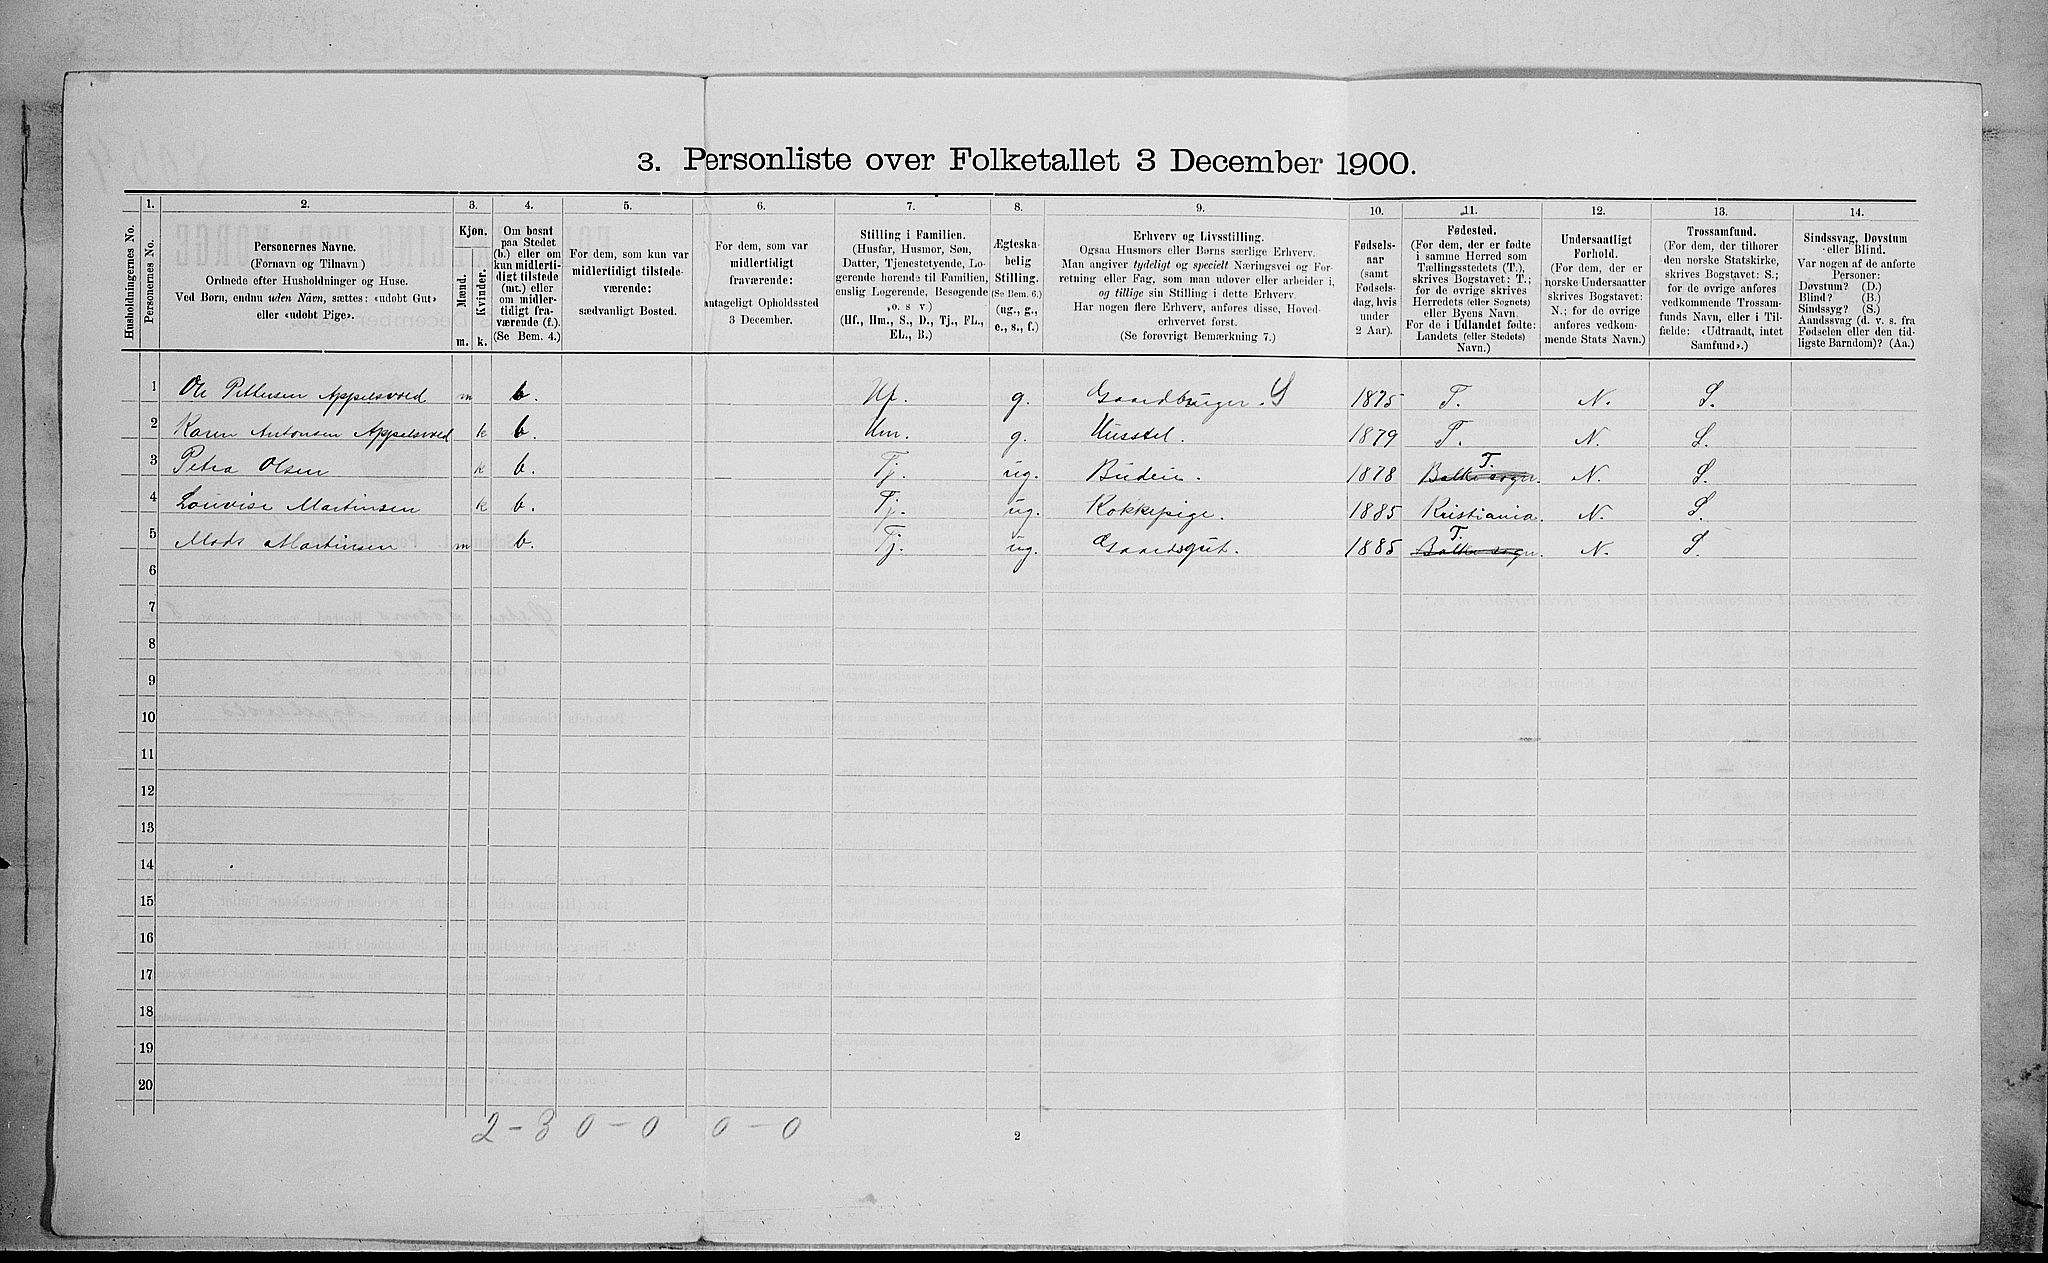 3. Personliste over Folketallet 3 December 1900.
1. 2. 3. 4. 5. 6. 7. 8. 9. 10. 11. 12. 13. 14.
Husholdningernes No.
Personernes No.
Personernes Navne.
(Fornavn og Tilnavn)
Ordnede efter Husholdninger og Huse.
Ved Børn, endnu uden Navn, sættes: «udøbt Gut»
eller «udøbt Pige».
Kjøn.
Mænd.
Kvinder.
m. k.
Om bosat
paa Stedet
(b.) eller om
kun midlerti-
digt tilstede
(mt.) eller
om midler-
tidigt fra-
værende (f.).
(Se Bem. 4.)
For dem, som kun var
midlertidigt tilstede-
værende:
sædvanligt Bosted.
For dem, som var
midlertidigt
fraværende:
antageligt Opholdssted
3 December.
Stilling i Familien.
(Husfar, Husmor, Søn,
Datter, Tjenestetyende, Lo-
gerende hørende til Familien,
enslig Logerende, Besøgende
o. s v)
(Hf., Hm., S., D., Tj., FL.,
EL., B.)
Ægteska-
belig
Stilling.
(Se Bem. 6.)
(ug., g.,
e., s., f.)
Erhverv og Livsstilling.
Ogsaa Husmors eller Børns særlige Erhverv.
Man angiver tydeligt og specielt Næringsvei og For-
retning eller Fag, som man udøver eller arbeider i,
og tillige sin Stilling i dette Erhverv.
Har nogen flere Erhverv, anføres disse, Hoved-
erhvervet først.
(Se forøvrigt Bemærkning 7.)
Fødsels-
aar
(samt
Fødsels-
dag, hvis
under
2 Aar).
Fødested.
(For dem, der er fødte
i samme Herred som
Tællingsstedets (T.),
skrives Bogstavet: T.;
for de øvrige skrives
Herredets (eller Sognets)
eller Byens Navn.
For de i Udlandet fødte:
Landets (eller Stedets)
Navn.)
Undersaatligt
Forhold.
(For dem, der er
norske Undersaatter
skrives Bogstavet:
N.; for de øvrige
anføres vedkom-
mende Stats Navn.)
Trossamfund.
(For dem, der tilhører
den norske Statskirke,
skrives Bogstavet: S.;
for de øvrige anføres
vedkommende Trossam-
funds Navn, eller i Til-
fælde: «Udtraadt, intet
Samfund».)
Sindssvag, Døvstum
eller Blind.
Var nogen af de anførte
Personer:
Døvstum? (D.)
Blind? (B.)
Sindssyg? (S.)
Aandssvag (d. v. s. fra
Fødselen eller den tid-
ligste Barndom)? (Aa.)
1 Ole Pettersen Appelsvold m b. Hf. g. Gaardbruger. S 1875 T. N. S.
2 Karen Antonsen Appelsvold k b. Hm. g. Husstel. 1879 T. N. S.
3 Petra Olsen k b. Tj. ug. Budeie. 1878 Balke sogn. T. N. S.
4 Louvise Martinsen k b. Tj. ug. Kokkepige. 1885 Kristiania. N. S.
5 Mads Martinsen m b. Tj. ug. Gaardsgut. 1885 Balke sogn. T. N. S.
6
7
8
9
10
11
12
13
14
15
16
17
18
19
20
2 - 3 0 - 0 0 - 0
2